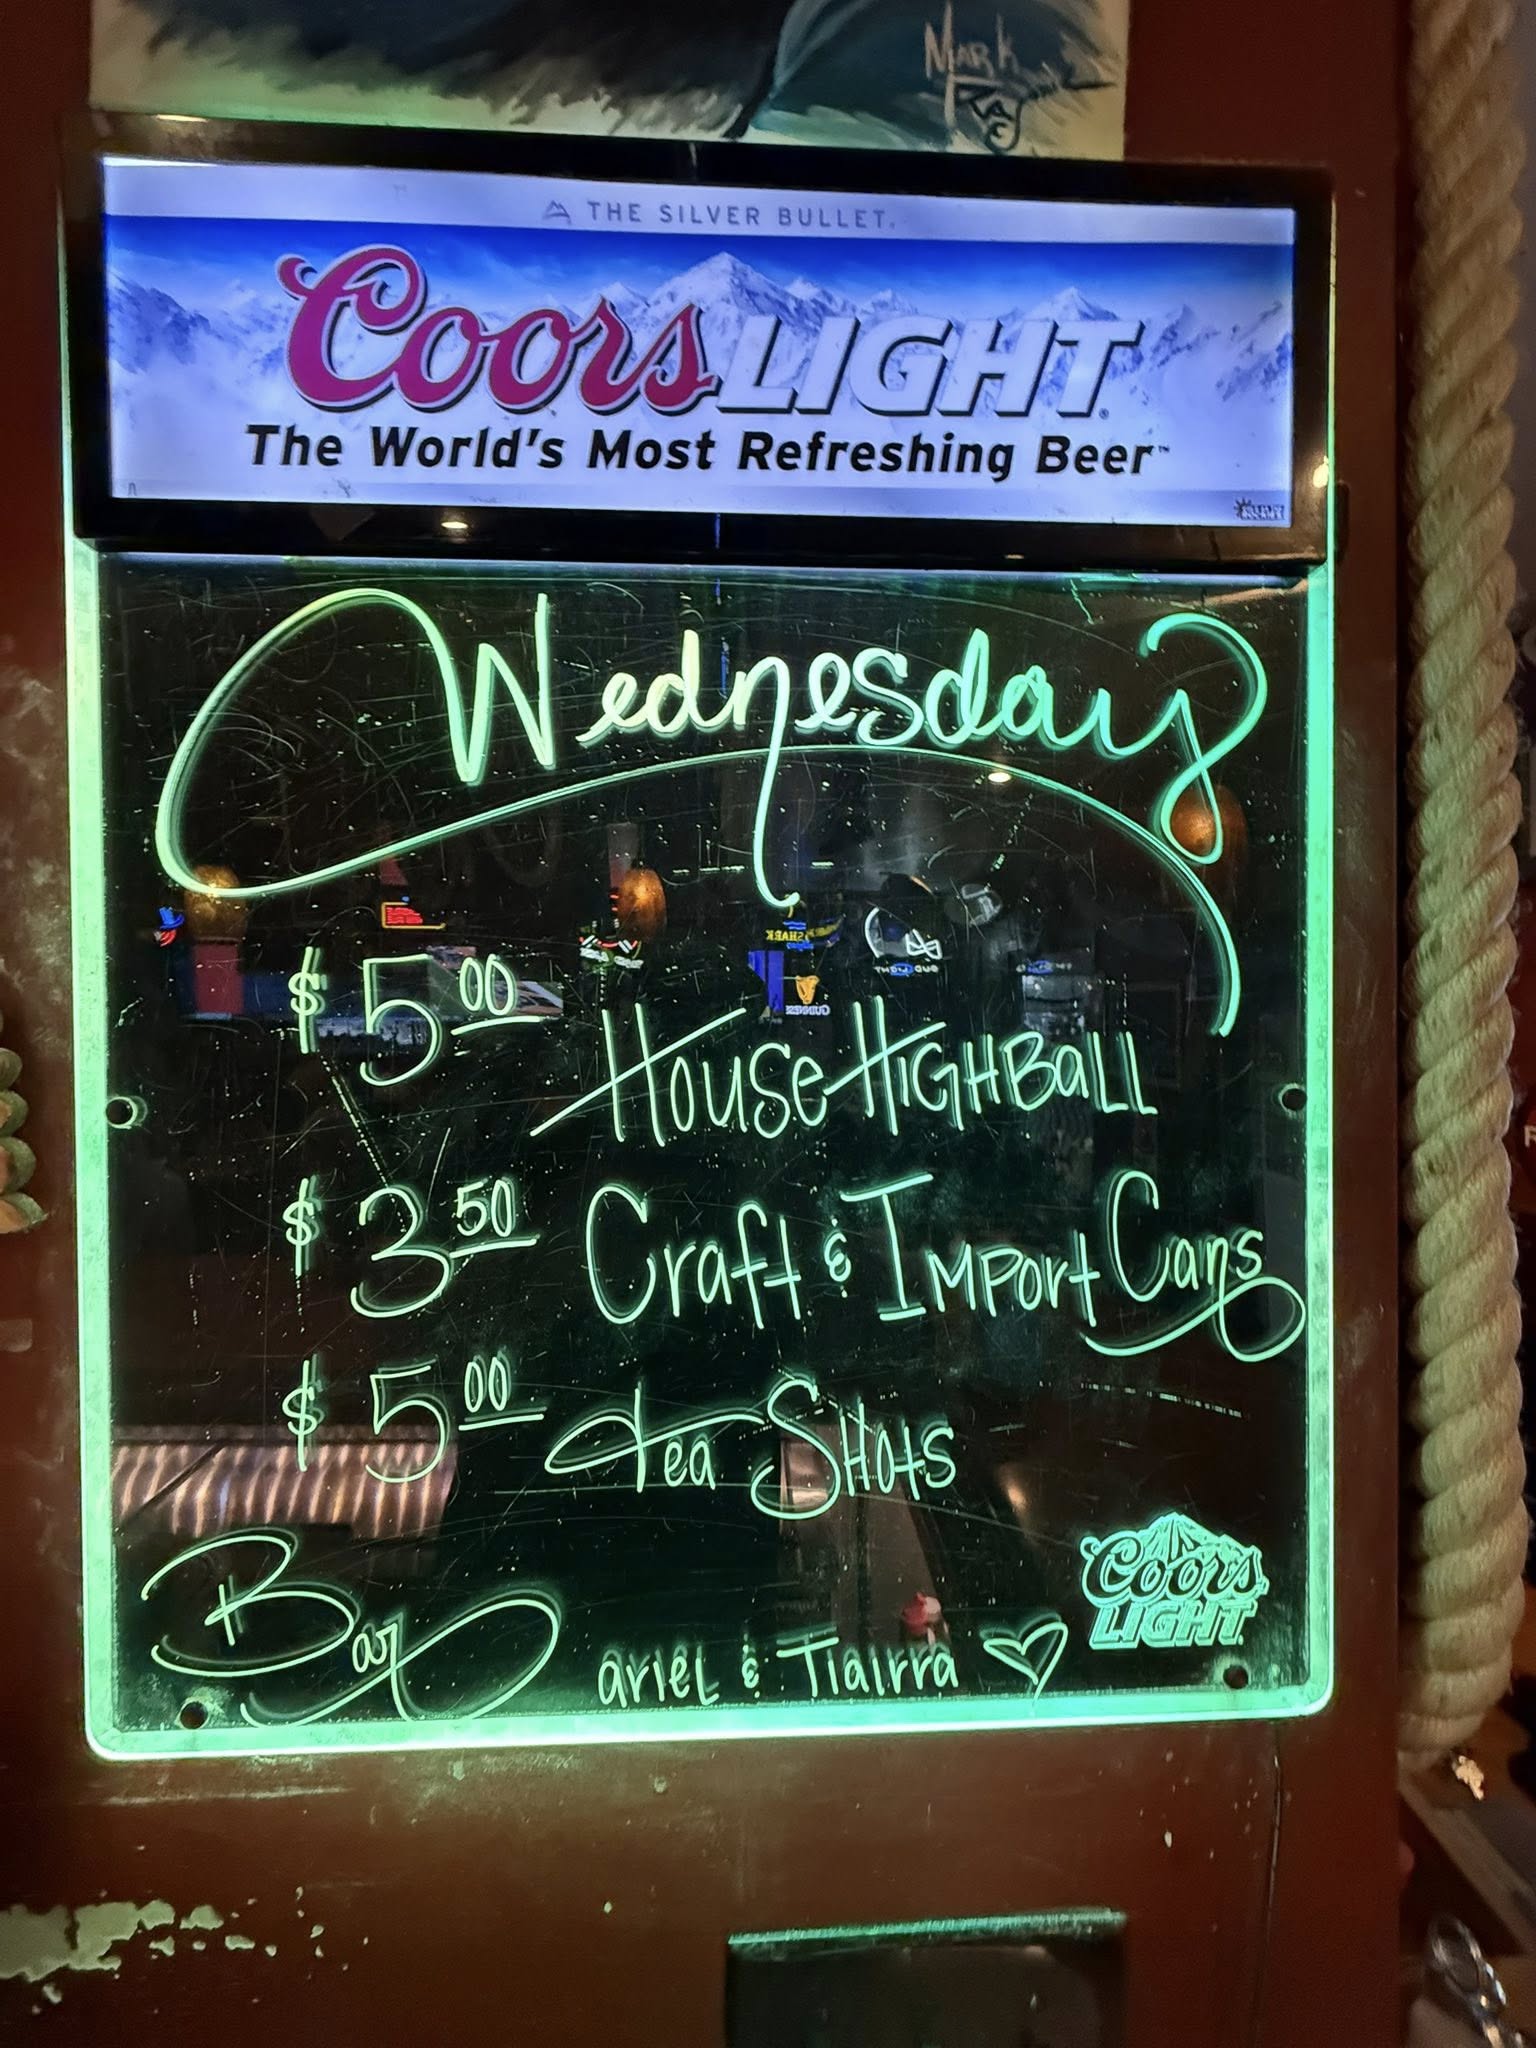 Mark
THE SILVER BULLET.
Coors LIGHT
The World's Most Refreshing Beer™
Wednesday
$5.00 House HighBall
$3.50 Craft & Import Cans
$5.00 Tea Shots
Bar ariel & Tiairra
Coors
LIGHT
SHARK
BUD LIGHT
GUINNESS